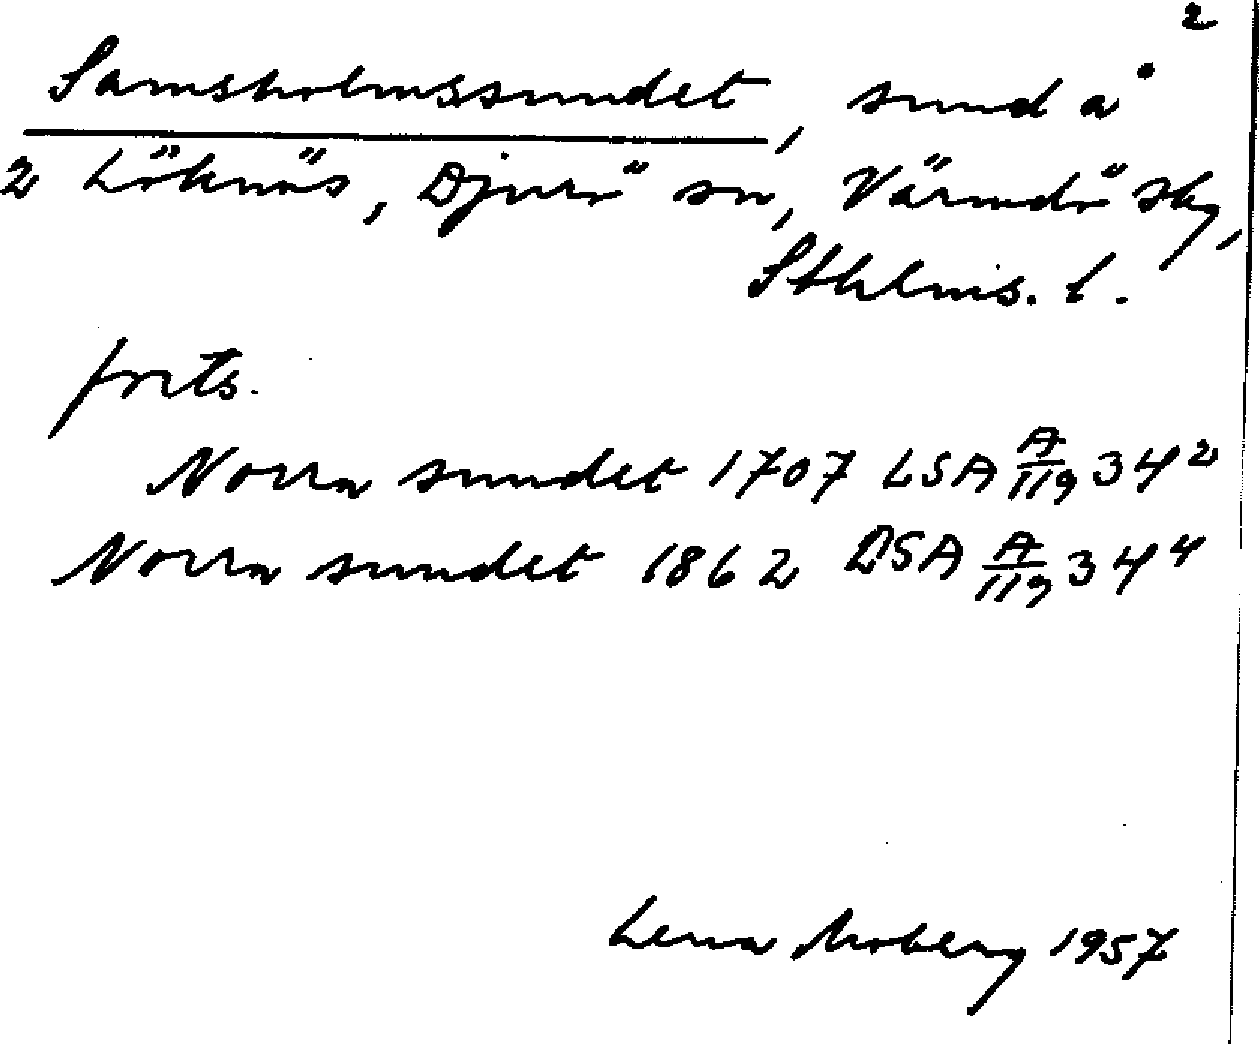 2
Samsholmssundet, sund å
2 Löknäs, Djurö sn, Värmdö skg,
Sthlms. l.
forts.
Norra sundet 1707 LSA A/119 34²
Norra sundet 1862 LSA A/119 34⁴
Lena Moberg 1957